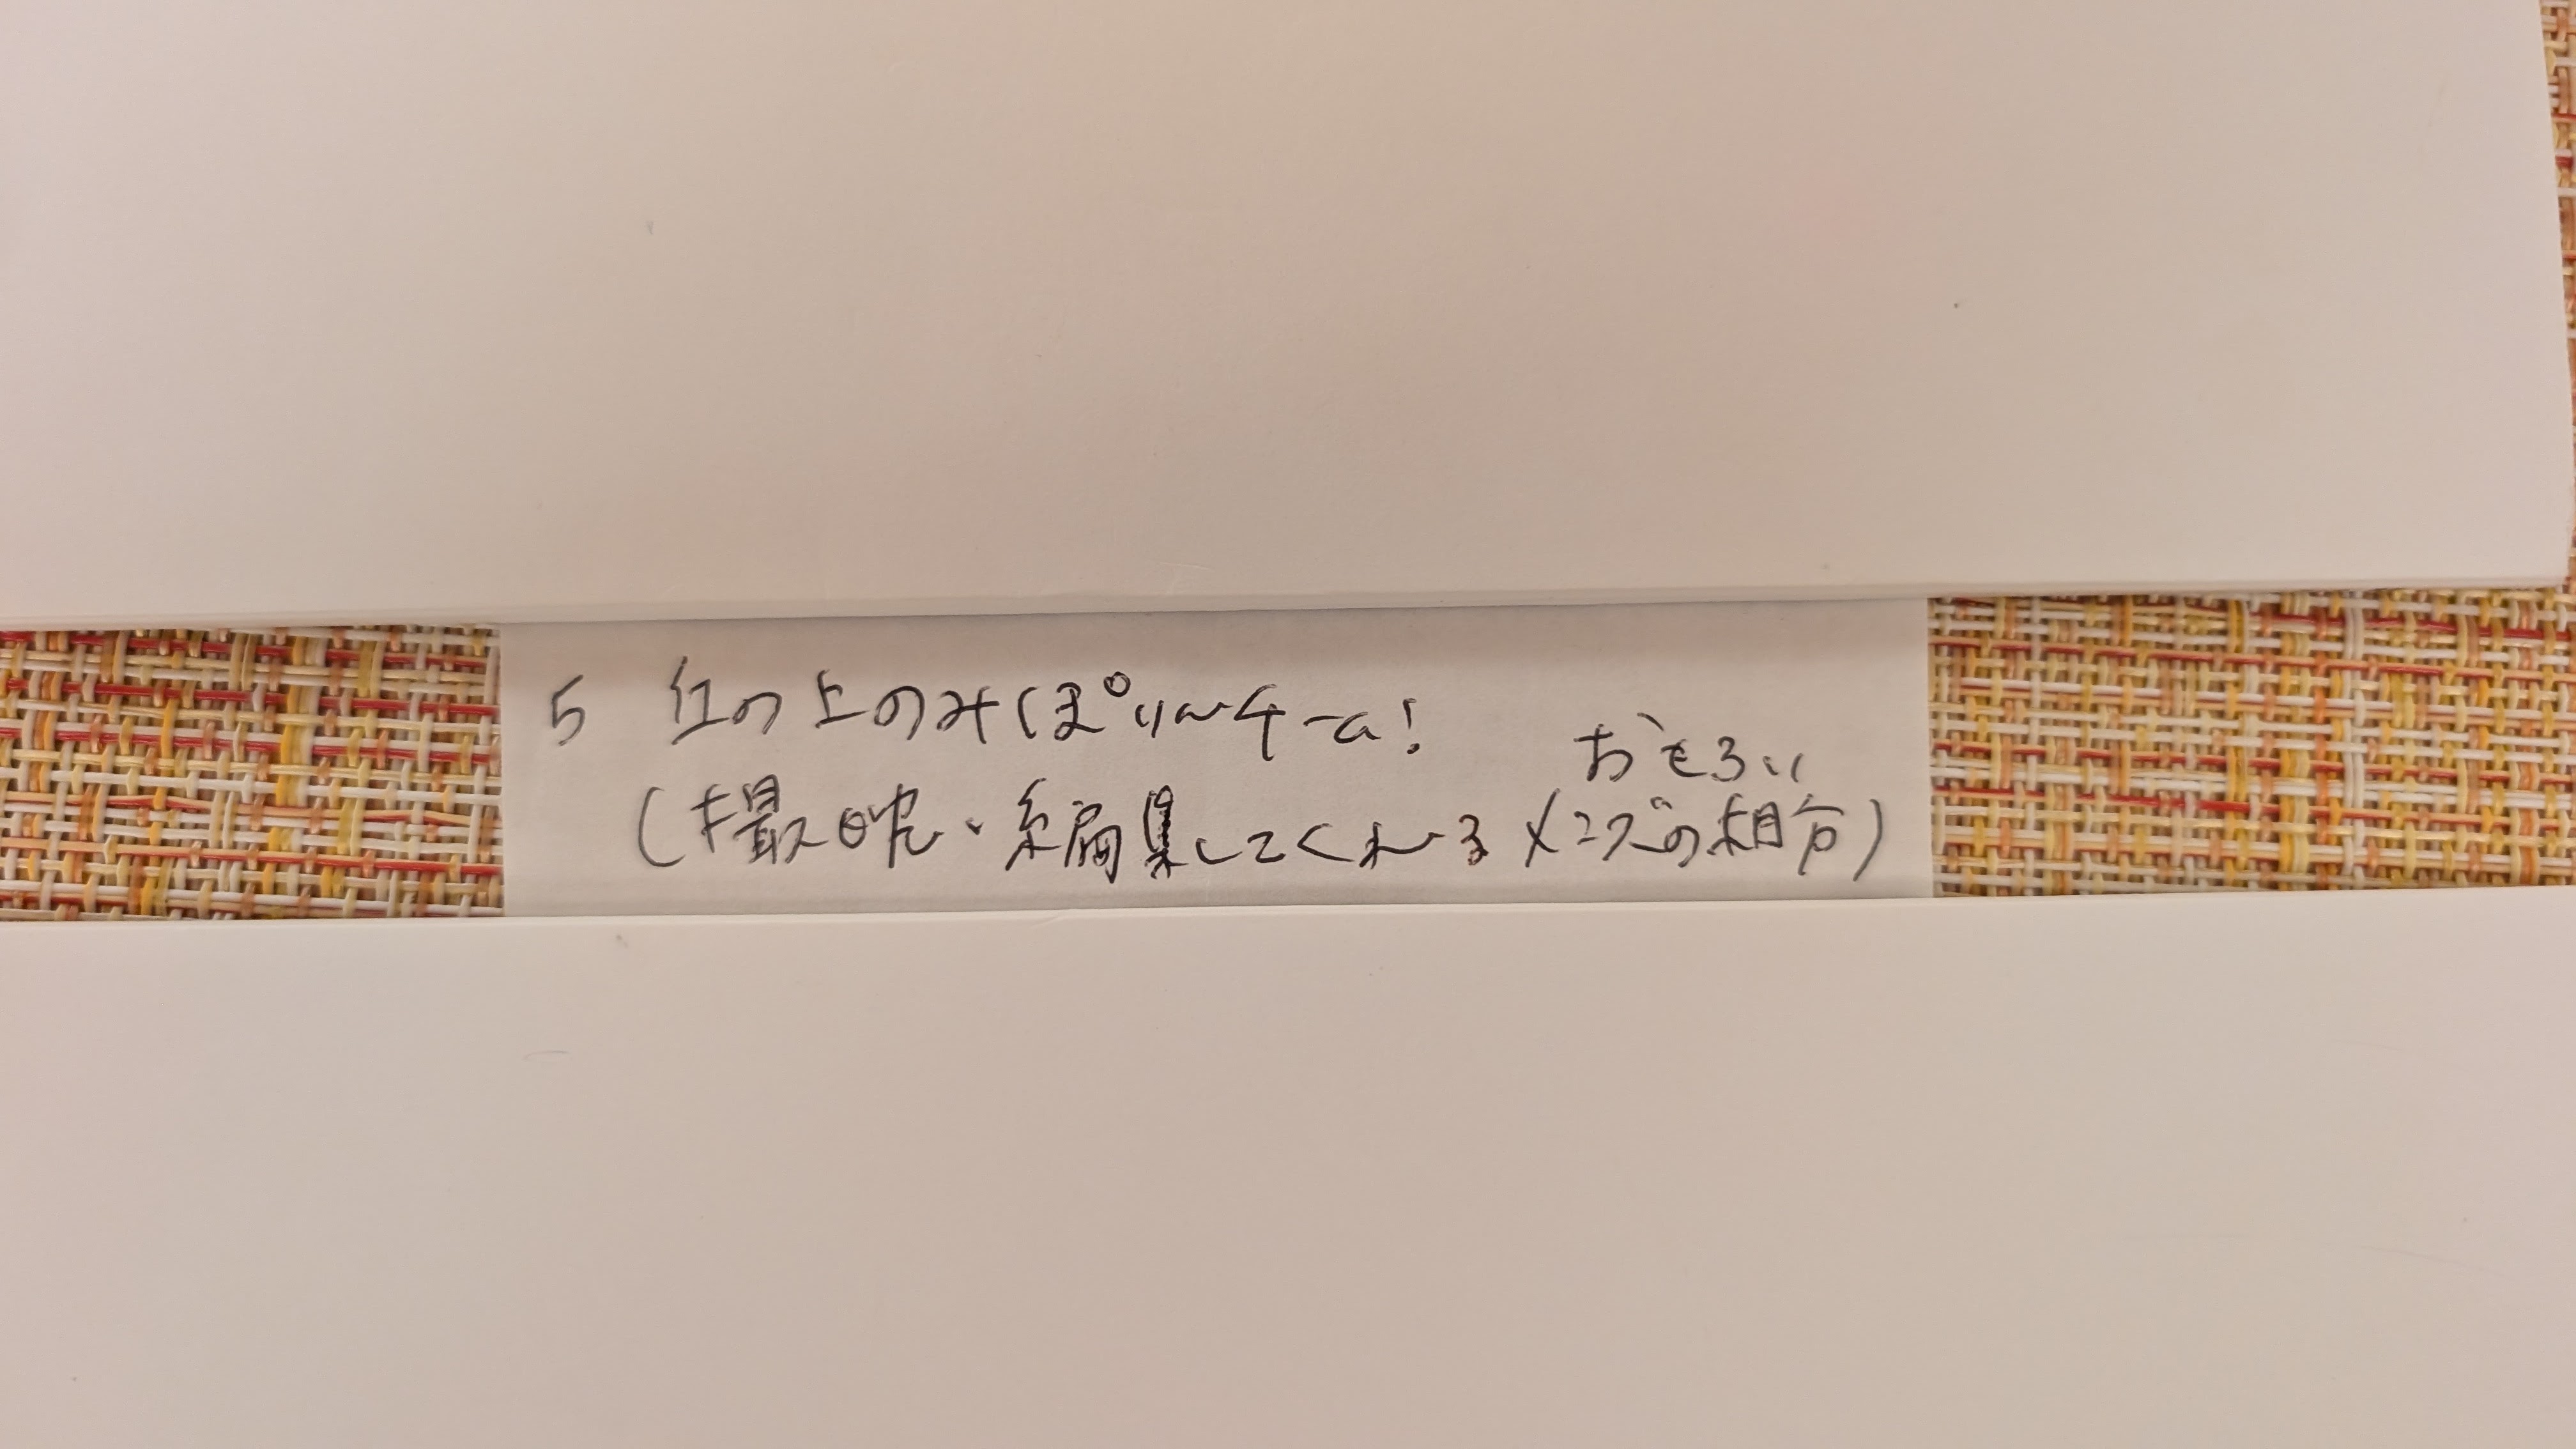 5 缶の上のみほぽりんチーム!
おそろい
(撮映・編集してくれるメンズの相方)